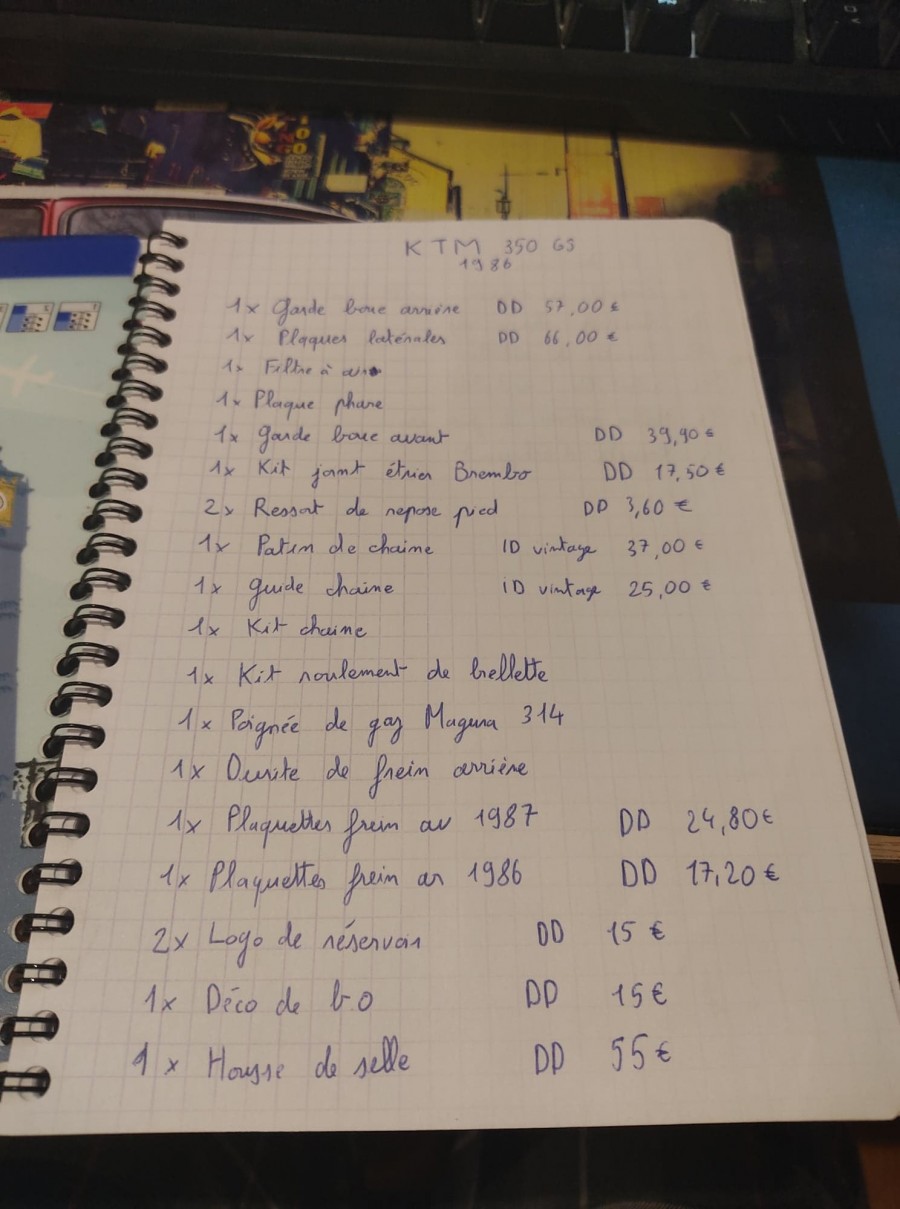 KTM 350 GS
1986
1x Garde boue arrière DD 57,00 €
1x Plaques latérales DD 66,00 €
1x Filtre à air
1x Plaque phare
1x Garde boue avant DD 39,90 €
1x Kit joint étrier Brembo DD 17,50 €
2x Ressort de repose pied DD 3,60 €
1x Patin de chaine ID vintage 37,00 €
1x guide chaine ID vintage 25,00 €
1x Kit chaine
1x Kit roulement de biellette
1x Poignée de gaz Magura 314
1x Durite de frein arrière
1x Plaquettes frein av 1987 DD 24,80€
1x Plaquettes frein ar 1986 DD 17,20 €
2x Logo de réservoir DD 15 €
1x Déco de b.o DD 15€
1x Housse de selle DD 55€